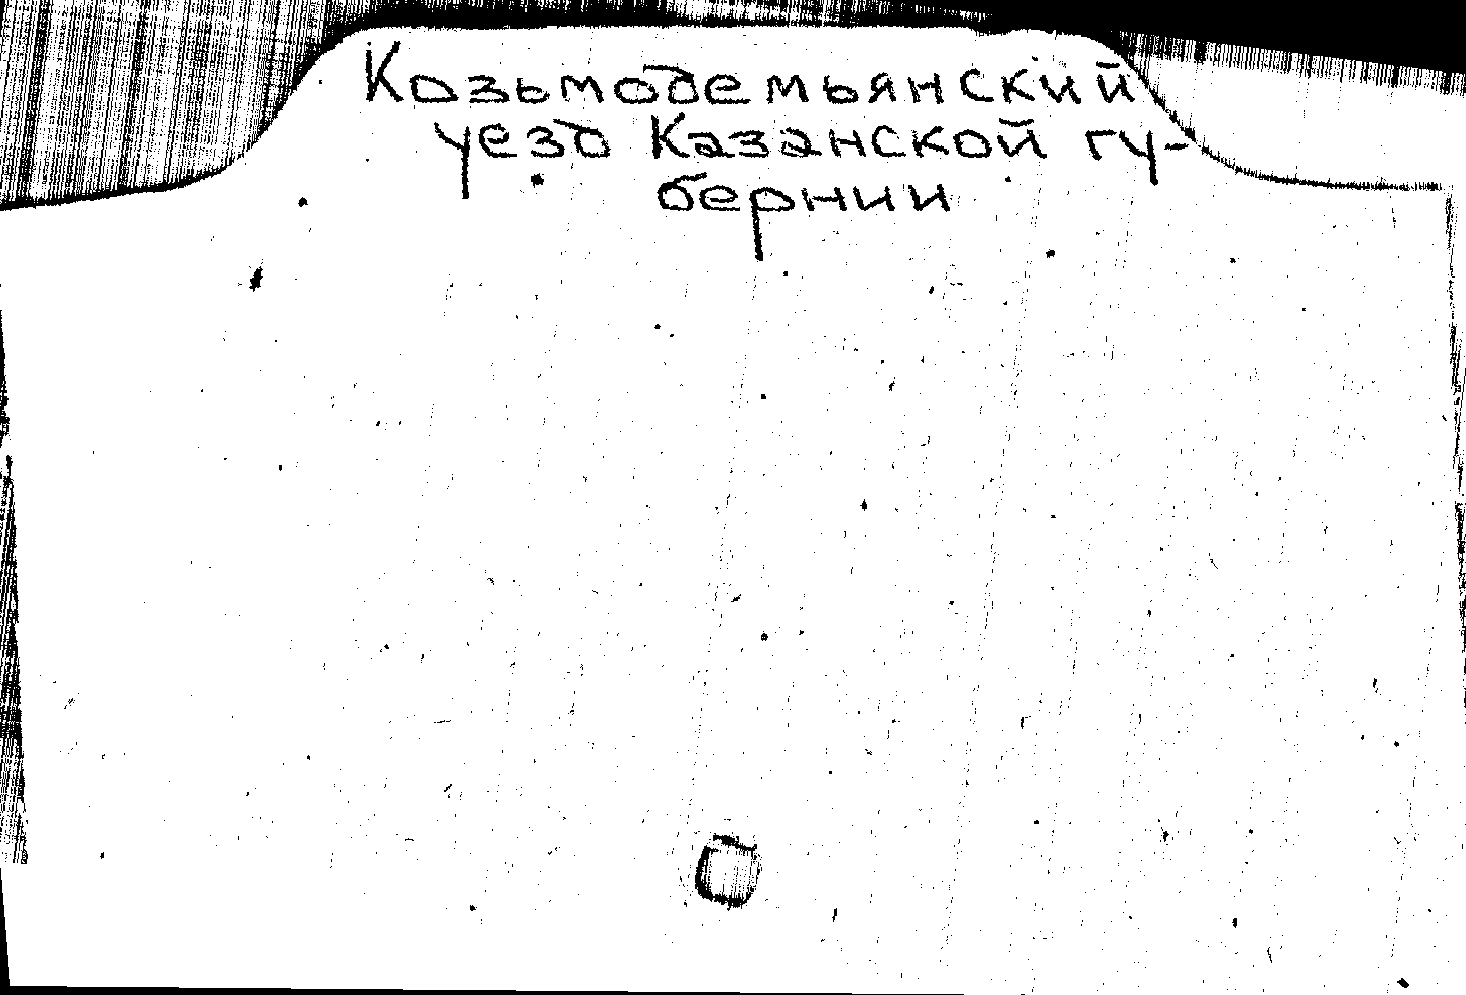 Козьмодемьянский
уезд Казанской гу-
бернии